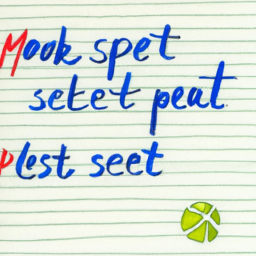 Mook spet
seteet peat.
plest seet